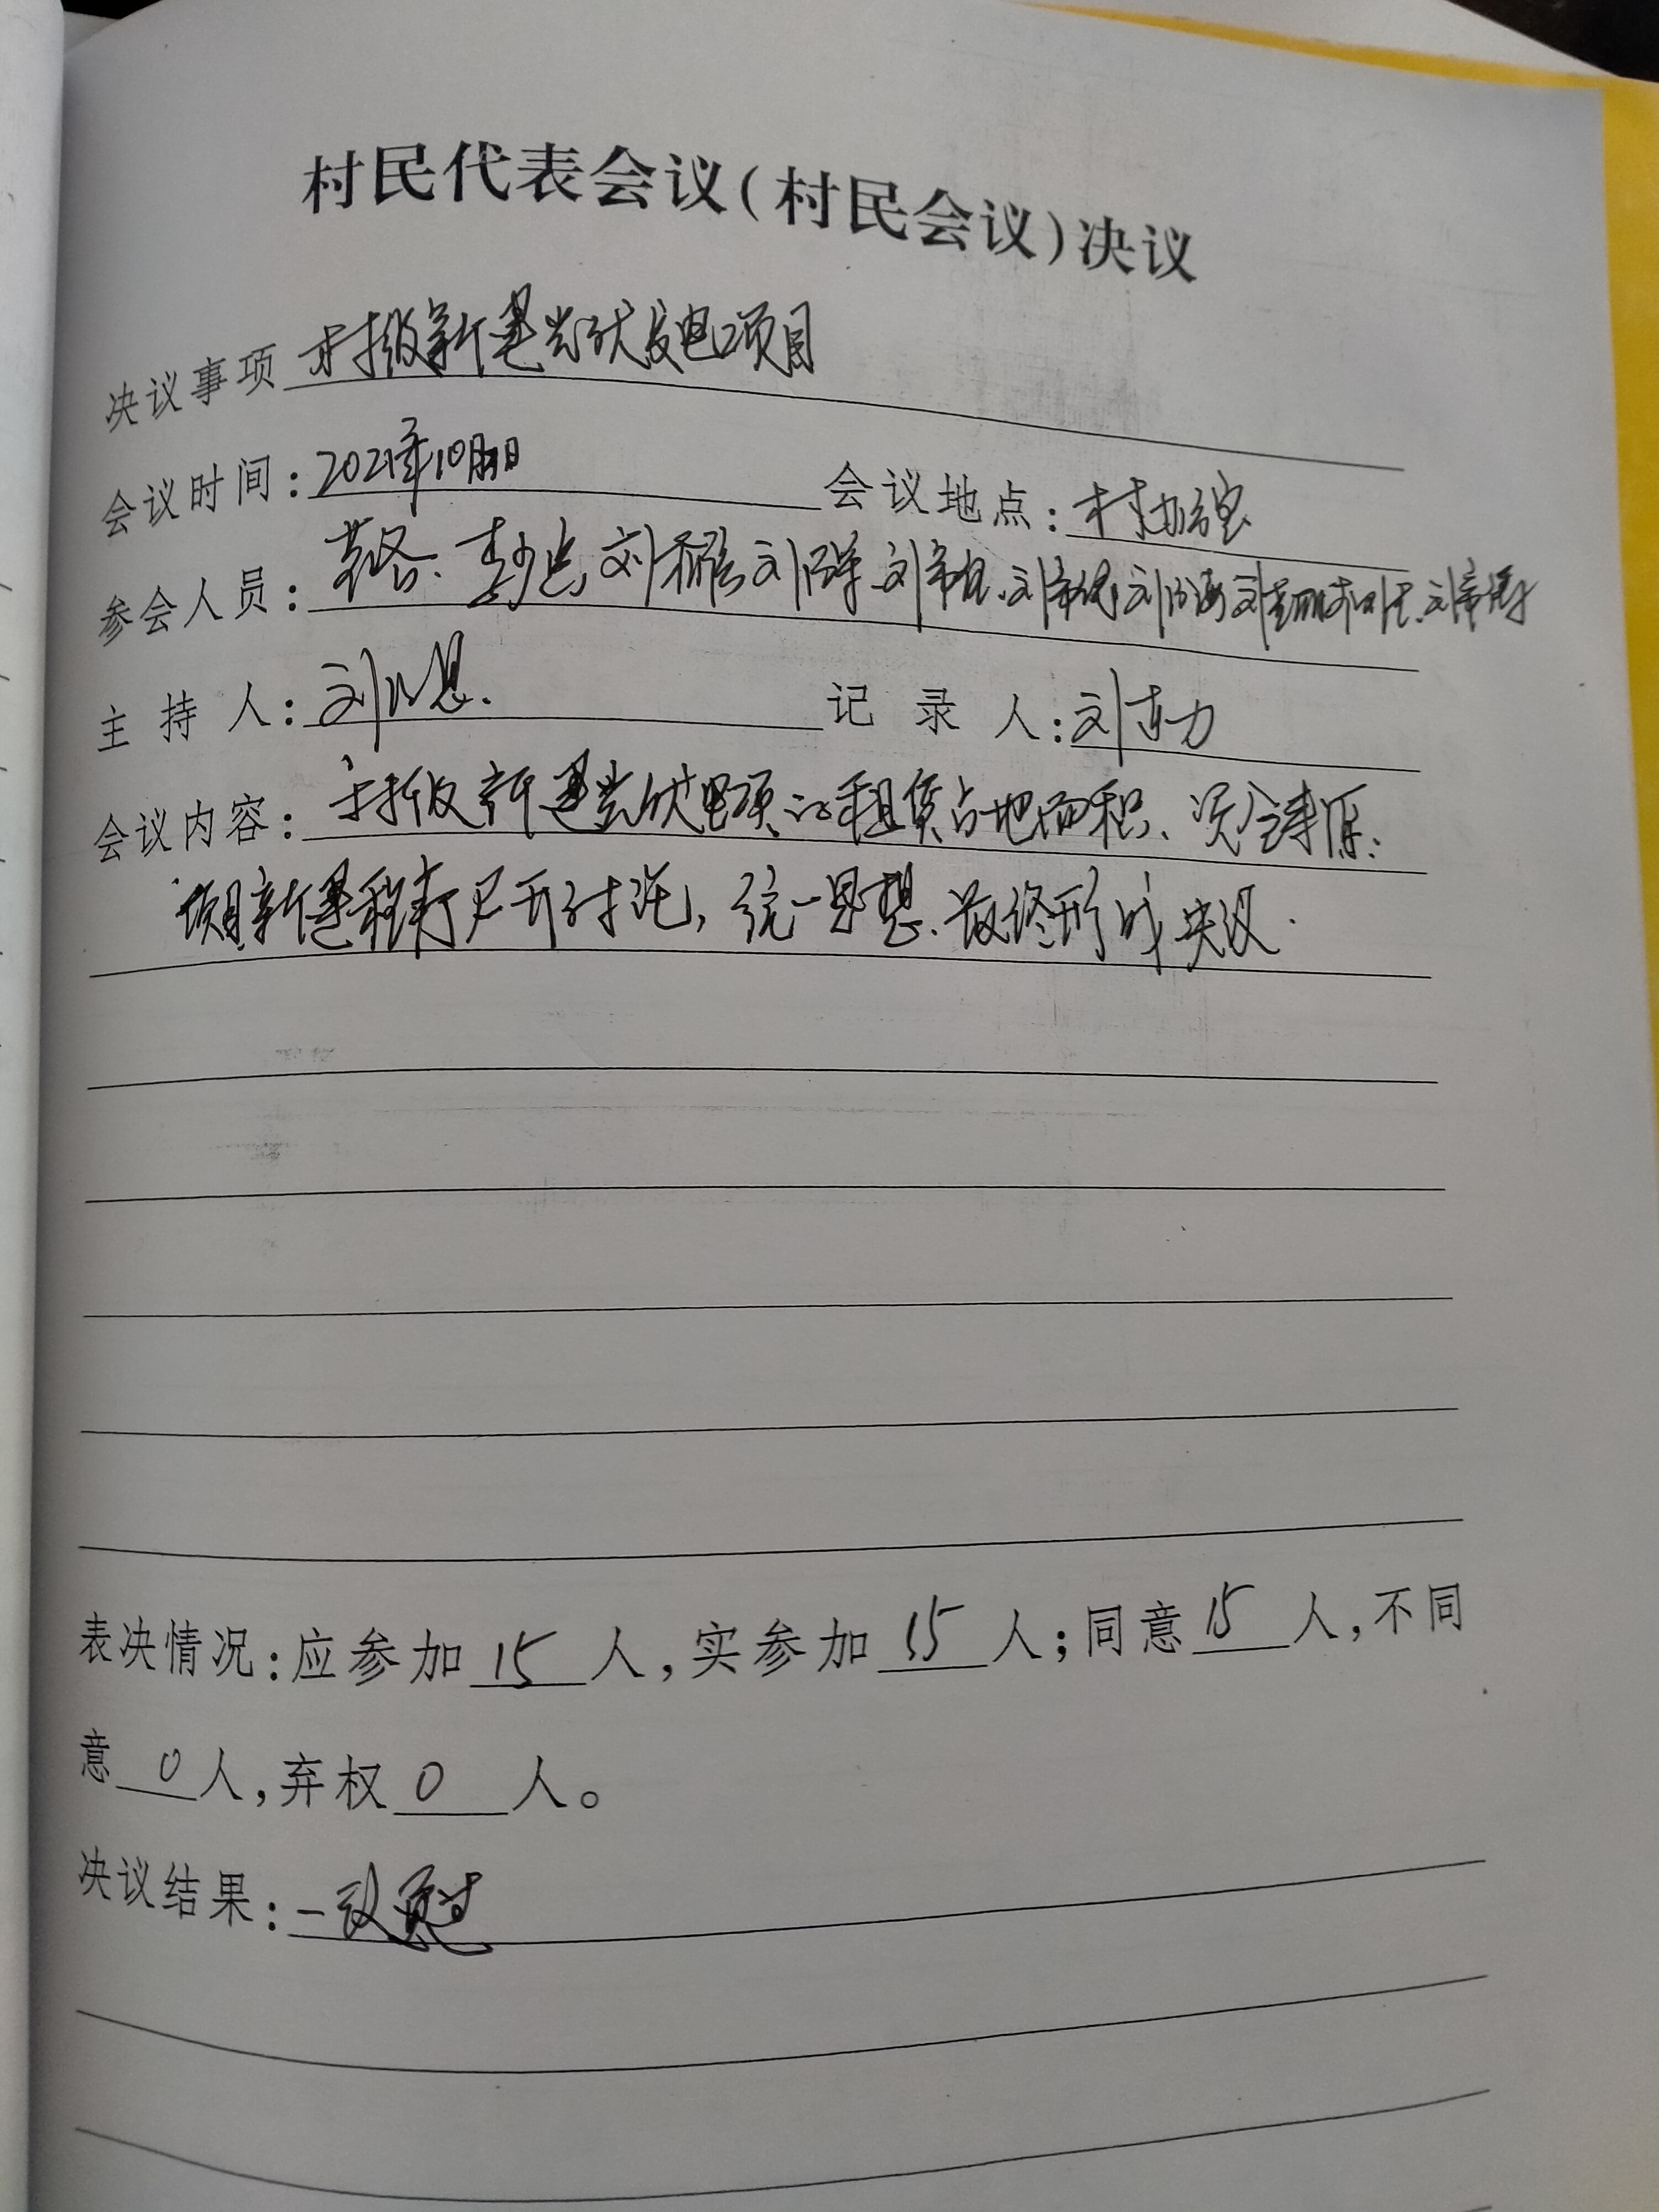 村民代表会议(村民会议)决议
决议事项 村级新建光伏发电项目
会议时间: 2021年10月 日 会议地点: 村办公室
参会人员: 刘 刘 刘 刘 刘 刘 刘
主持人: 刘 记录人: 刘东力
会议内容: 村级新建光伏电项目租赁占地面积、资金来源:
项目新建程序展开讨论, 统一思想、最终形成决议.
表决情况:应参加 15 人,实参加 15 人;同意 15 人,不同
意 0 人,弃权 0 人。
决议结果: 一致通过